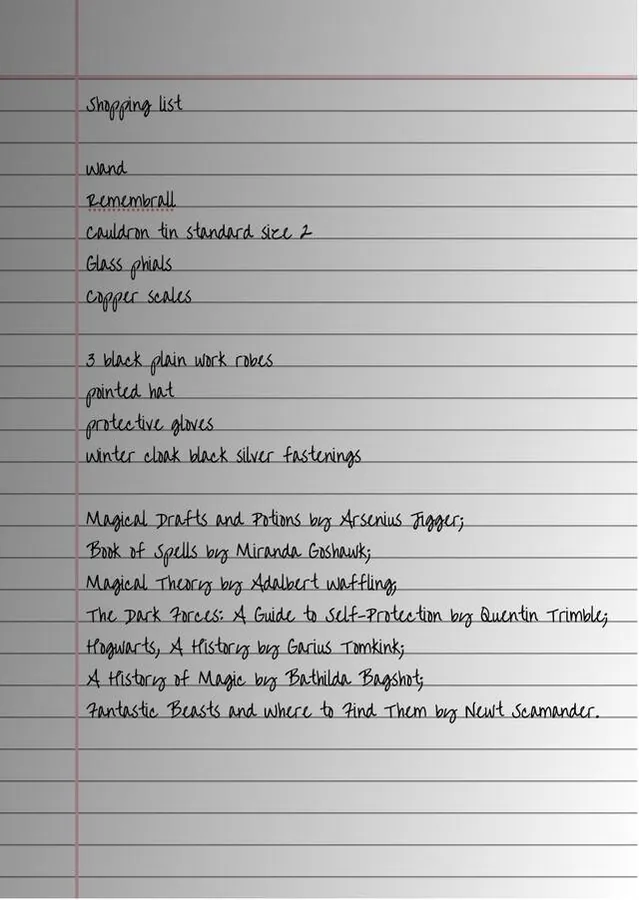 Shopping list
wand
Remembrall
Cauldron tin standard size 2
Glass phials
Copper scales
3 black plain work robes
pointed hat
protective gloves
winter cloak black silver fastenings
Magical Drafts and Potions by Arsenius Jigger;
Book of Spells by Miranda Goshawk;
Magical Theory by Adalbert Waffling;
The Dark Forces: A Guide to Self-Protection by Quentin Trimble;
Hogwarts, A History by Garius Tomkink;
A History of Magic by Bathilda Bagshot;
Fantastic Beasts and Where to Find Them by Newt Scamander.